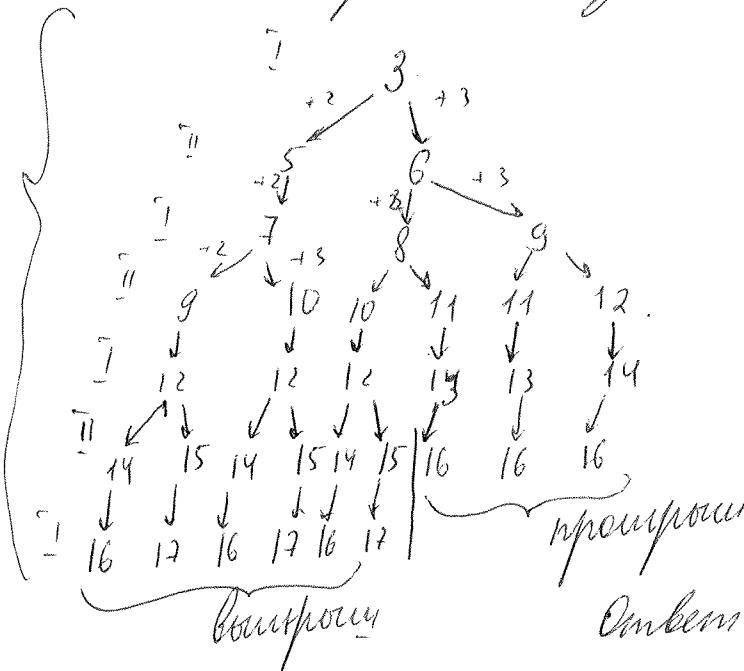 I
3
+2 +3
II 5 6
+2 +3
I 7 8 9
+2 +3
II 9 10 10 11 11 12 .
I 12 12 12 13 13 14
II 14 15 14 15 14 15 16 16 16
I 16 17 16 17 16 17
проигрыш
выигрыш
Ответ